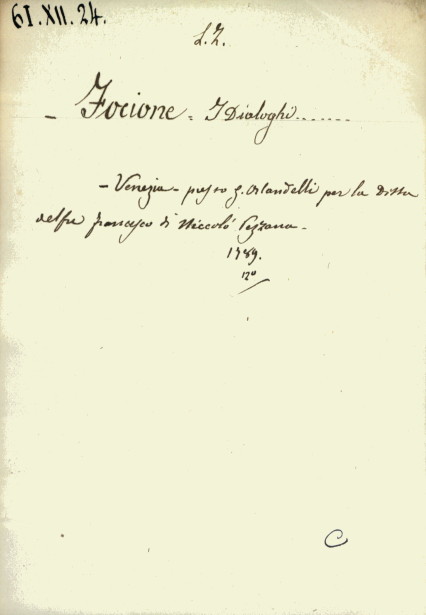 61.XII.24.
L.Z.
- Focione = I Dialoghi.......
- Venezia - presso G. Orlandelli per la Ditta
del fu Francesco di Niccolò Pezzana -
1789.
12º
C